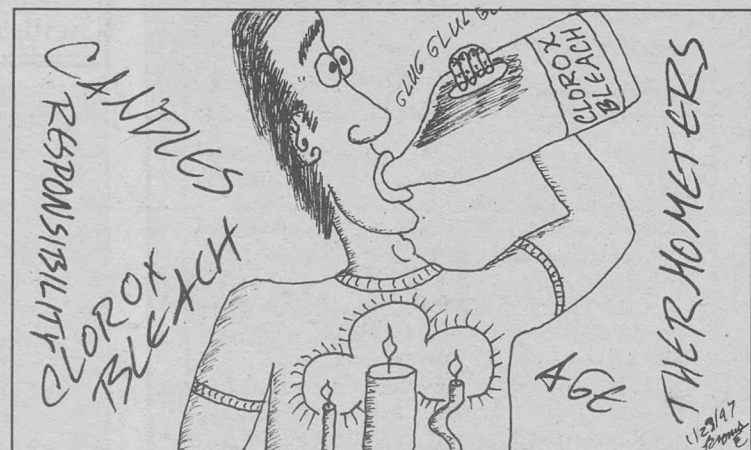 CANDLES
RESPONSIBILITY
CLOROX
BLEACH
GLUG GLUG
CLOROX
BLEACH
AGE
THERMOMETERS
1/29/97